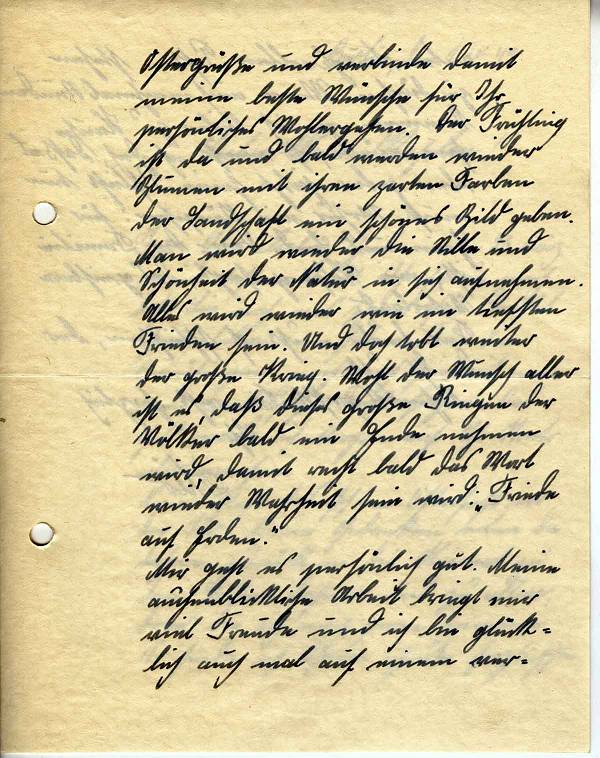 Ostergrüße und verbinde damit
meine beste Wünsche für Ihr
persönliches Wohlergehen. Der Frühling
ist da und bald werden wieder
Blumen mit ihren zarten Farben
der Landschaft ein schönes Bild geben.
Man wird wieder die Stille und
Schönheit der Natur in sich aufnehmen.
Alles wird wieder wie im tiefsten
Frieden sein. Und doch tobt weiter
der große Krieg. Wohl der Wunsch aller
ist es, daß dieses große Ringen der
Völker bald ein Ende nehmen
wird, damit recht bald das Wort
wieder Wahrheit sein wird: „Friede
auf Erden."
Mir geht es persönlich gut. Meine
augenblickliche Arbeit bringt mir
viel Freude und ich bin glück=
lich auch mal auf einem ver=